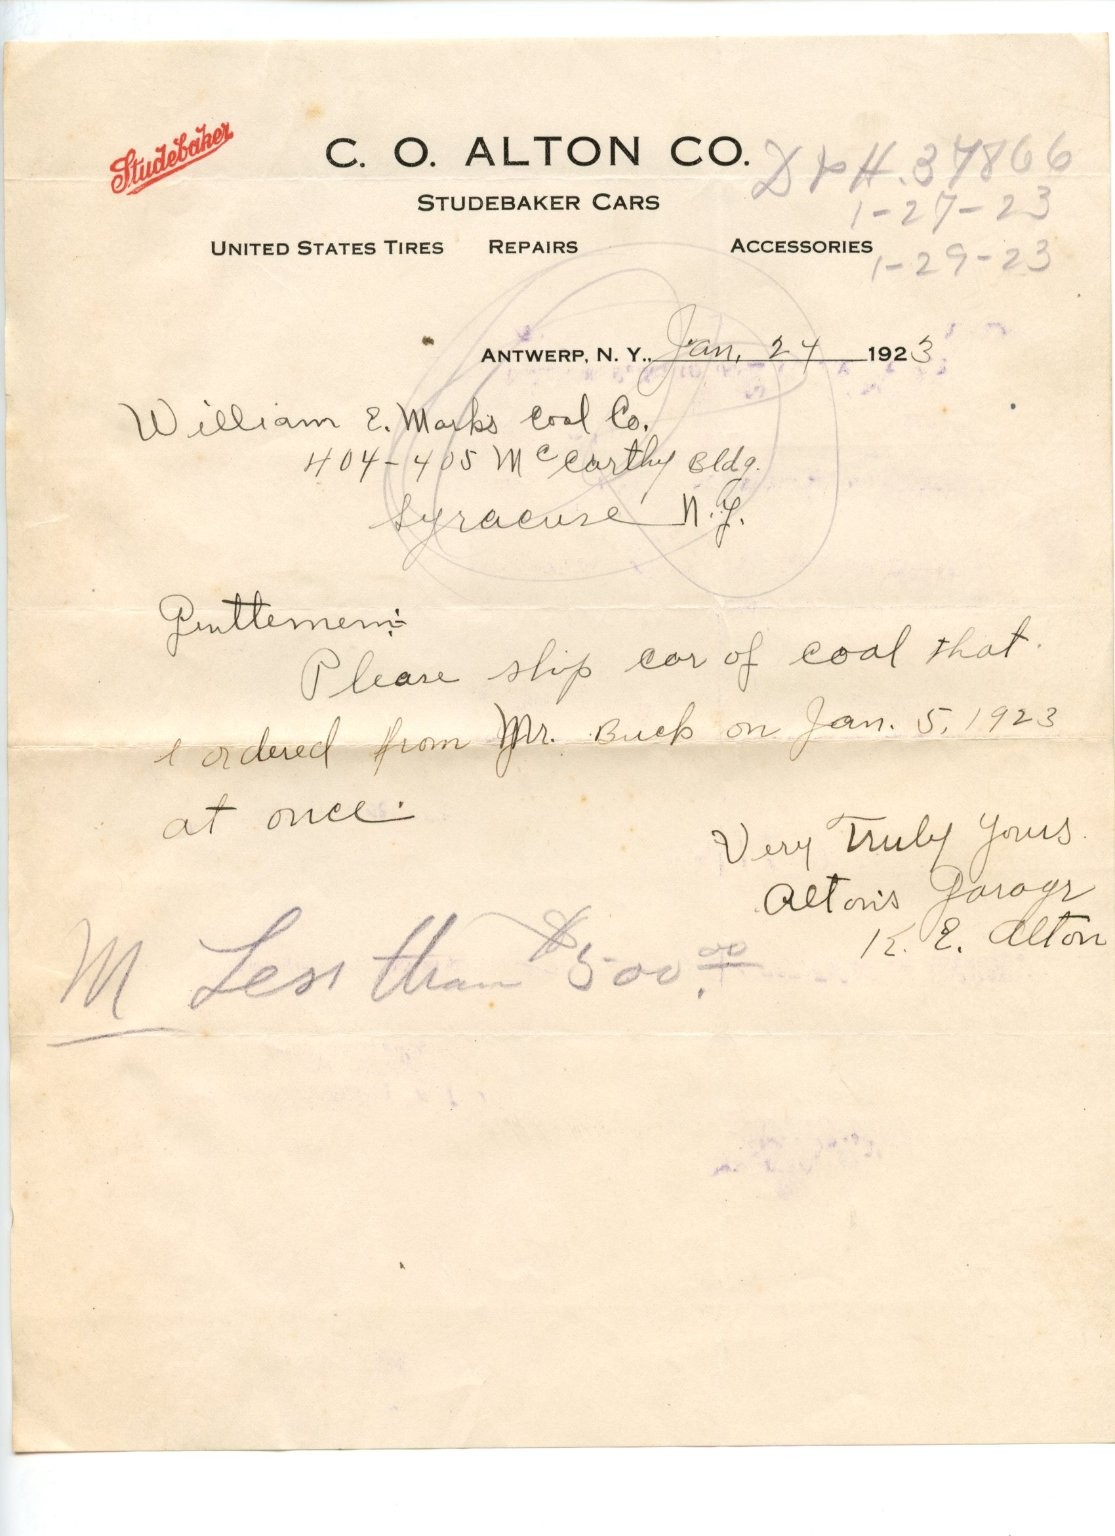 Studebaker
C. O. ALTON CO.
STUDEBAKER CARS
UNITED STATES TIRES REPAIRS ACCESSORIES
D & H. 37866
1-27-23
1-29-23
ANTWERP, N. Y., Jan. 24 1923
William E. Marks Coal Co.
404-405 McCarthy Bldg.
Syracuse N.Y.
Genttemem:-
Please ship car of coal that
I ordered from Mr. Buck on Jan. 5, 1923
at once.
Very Truly Yours.
Alton's Garage
K. E. Alton
M Less than $500.00